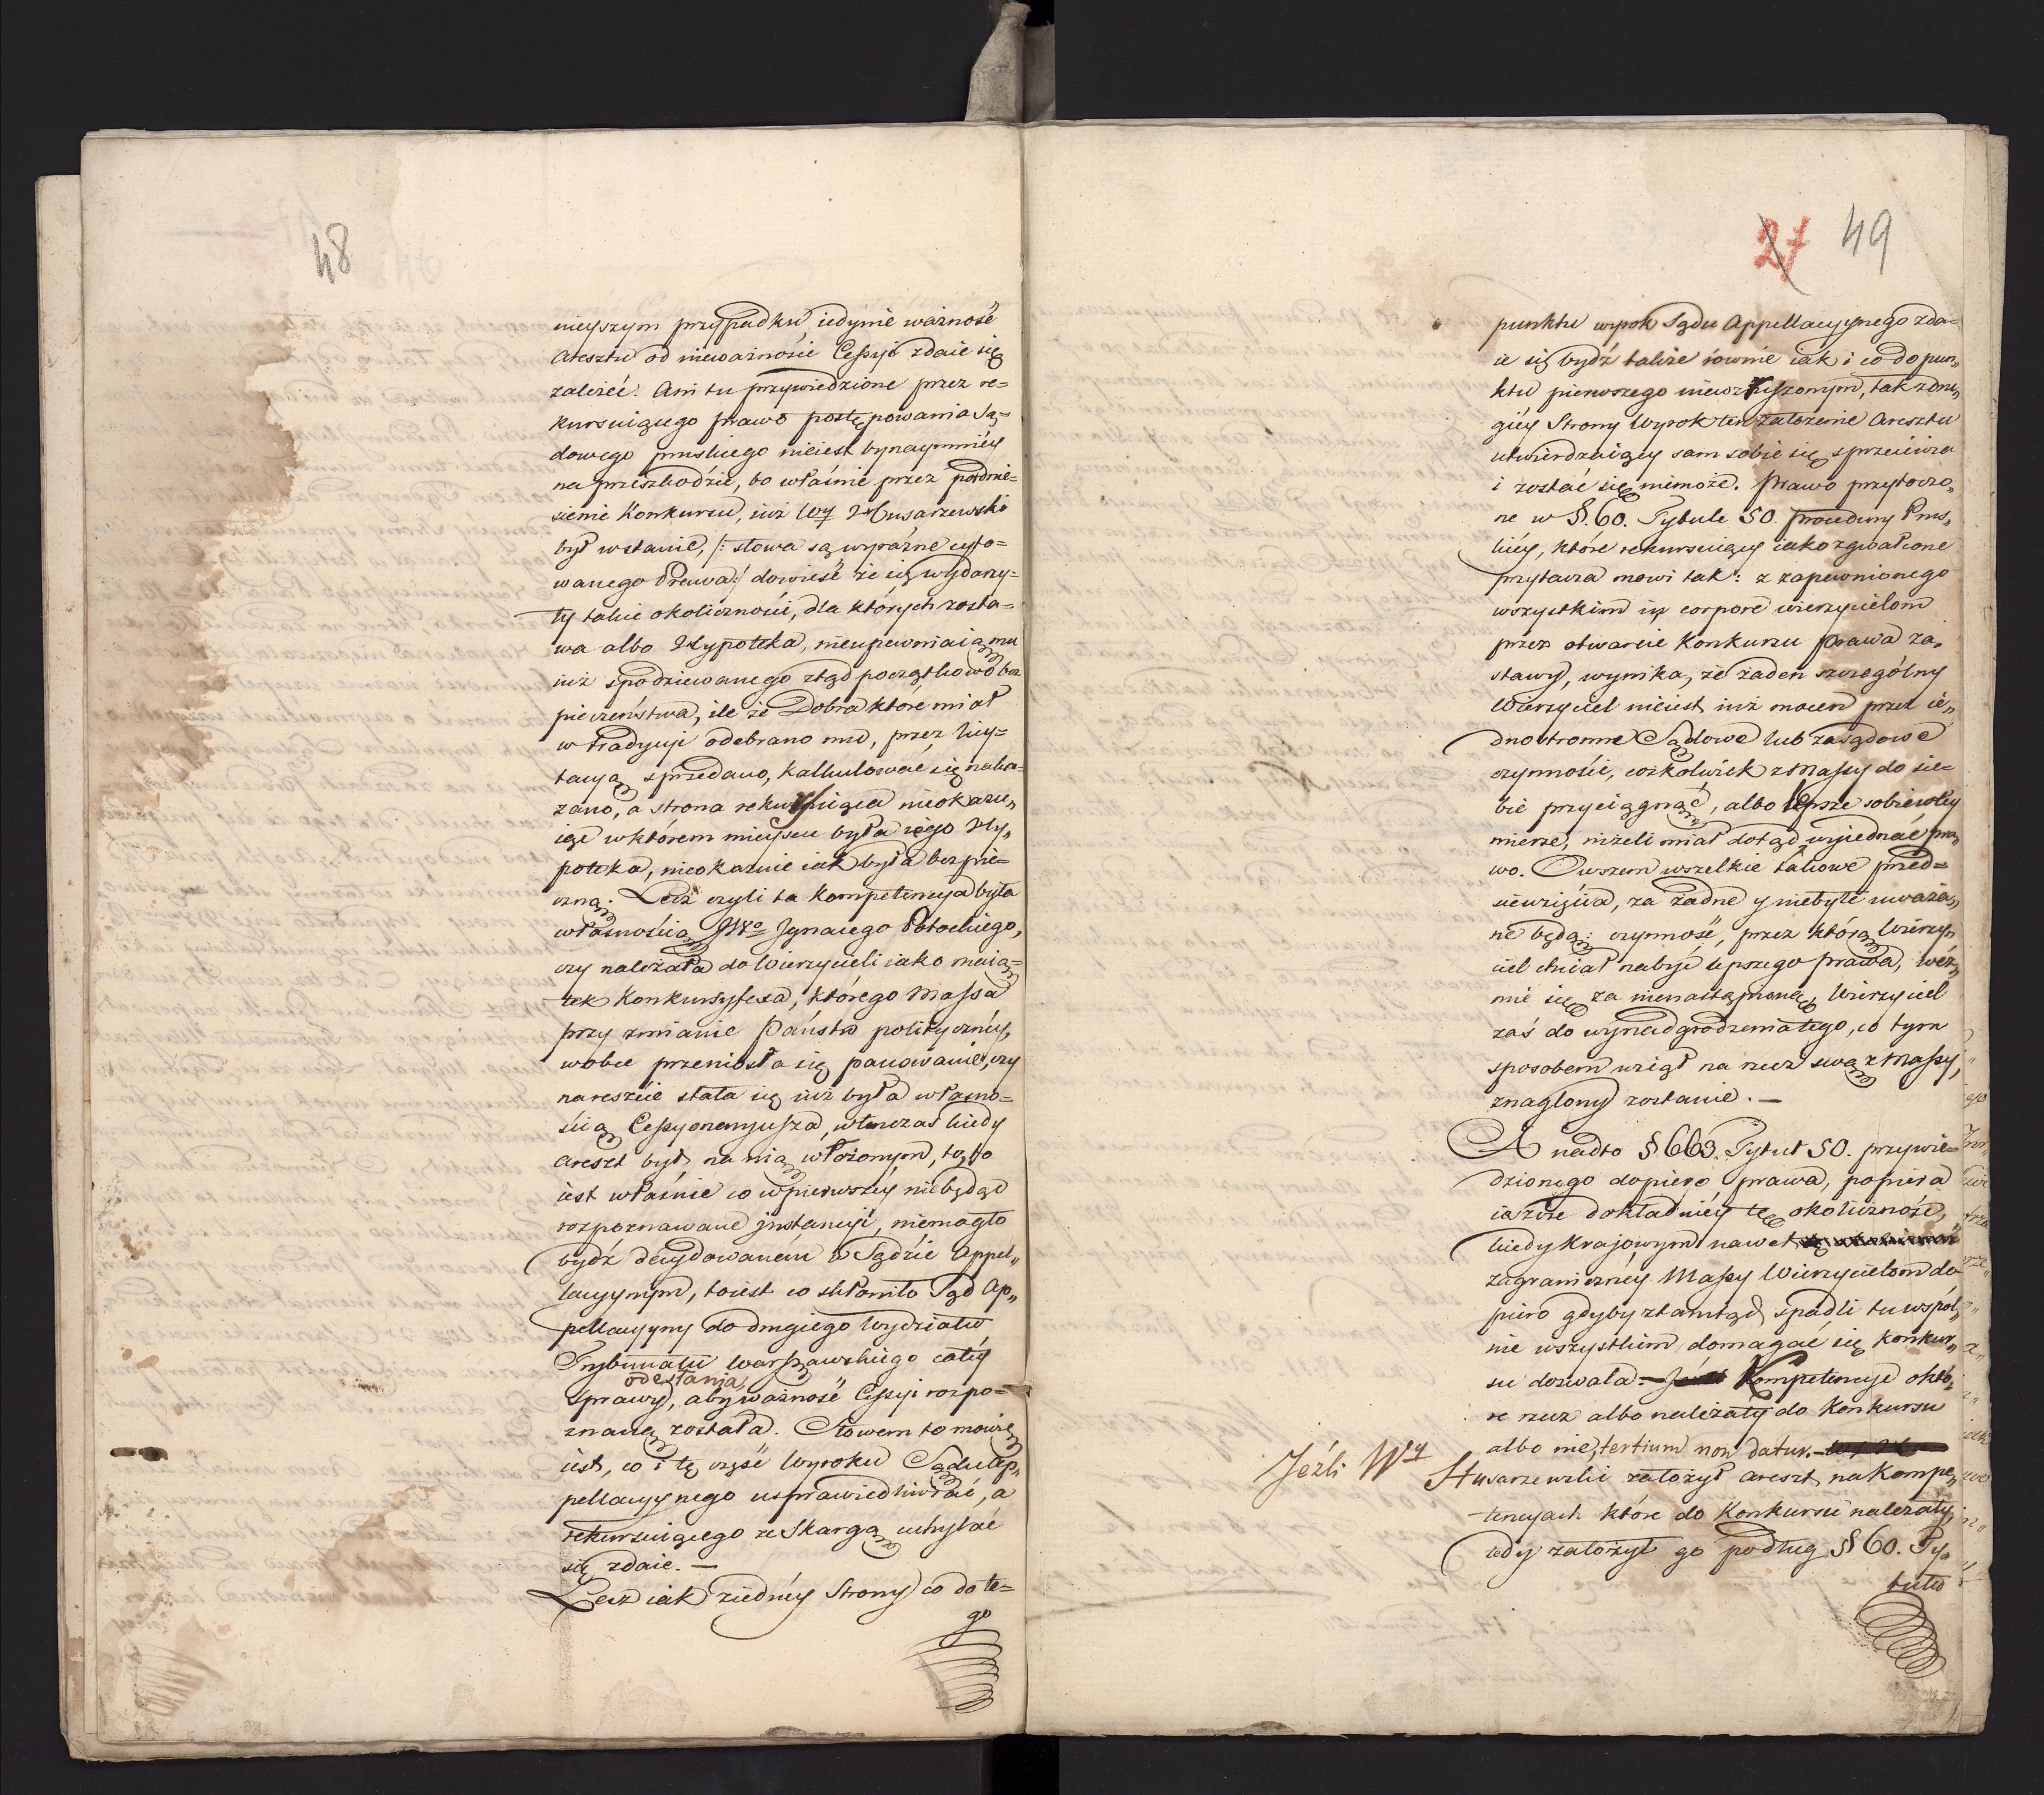 48
nieyszym przypadku iedynie ważność
Aresztu od nieważnoście Cessyi zdaie się
zależeć. Ani tu przywiedzione przez re=
kursuiącego prawo postępowania Są=
dowego pruskiego nieiest bynaymniéy
na przeszkodzie, bo właśnie przez podnie=
sienie Konkursu, iuż Wy Husarzewski
był wstanie, /: słowa są wyraźne cyto=
wanego Prawa :/ dowieść że się wydarzy=
ły takie okoliczności, dla których zosta=
wa albo Hypoteka, nieupewniaią mu
iuż spodziewanego ztąd początkowo bez
pieczeństwa, ile że Dobra które miał
w tradycyi odebrano mu, przez licy=
tacyą sprzedano, kalkulować się naka=
zano, a strona rekursuiąca nieokazu„
iąc wktórem mieyscu była iego Hy„
poteka, nieokazuie iak była bezpie=
czną. Lecz czyli ta kompetencya była
własnością JWo Ignacego Potockiego,
czy należała do Wierzycieli iako maią=
tek Konkursyfexa, którego Massa
przy zmianie Państw polityczney,
wobce przeniosła się panowanie, czy
nareszcie stała się iuż była własno=
ścią Cessyonaryusza, wtenczas kiedy
Areszt był na nią włożonym, to, to
iest właśnie co wpierwszéy niebędąc
rozpoznawane instancyi, niemogło
bydź decydowaném w Sądzie Appel„
lacyynym, toiest co skłoniło Sąd Ap„
pellacyyny do drugiego Wydziału
Trybunału Warszawskiego całéy
odesłania,
sprawy, aby ważność Cessyi rozpo=
znaną została. Słowem to mówię
iest, co i tę część Wyroku Sądu Ap„
pellacyynego usprawiedliwiać, a
rekursuiącego ze Skargą uchylać
się zdaie. —
Lecz iak ziednéy Strony co do te=
go
27 49
punktu wyrok Sądu Appellacyynego zda=
ie się bydź także równie iak i co do pun„
ktu pierwszego niewzruszonym, tak zdru„
giéy Strony Wyrok ten założenie Aresztu
utwierdzaiący sam sobie się sprzeciwia
i zostać się niemoże. Prawo przytoczo„
ne w §. 60. Tytule 50. procedury Prus„
kiéy, które rekursuiący iako zgwałcone
przytacza mowi tak: z zapewnionego
wszystkim in corpore wierzycielom
przez otwarcie Konkursu prawa za„
stawy, wynika, że żaden szczególny
Wierzyciel nieiest iuż mocen przez ie„
dnostronne Sądowe lub zasądowe
czynnoście, cożkolwiek z Massy do sie=
bie przyciągnąć, albo lepsze sobie wtéy
mierze, niżeli miał dotąd wyiednać pra„
wo. Owszem wszelkie takowe przed=
siewzięcia, za żadne y niebyłe uważa„
ne będą: czynność, przez którą Wierzy„
ciel chciał nabyć lepszego prawa, weź„
mie się za nienastąpioną, Wierzyciel
zaś do wynadgrodzenia tego, co tym
sposobem wziął na rzecz swą z Massy,
znaglony zostanie. —
A nadto § 663. Tytuł 50. przywie=
dzionego dopiero prawa, popiera
ieszcze dokładniéy tę okoliczność,
kiedy krajowym nawet
zagraniczney Massy Wierzycielom do
piero gdyby ztamtąd spadli tu wspól„
nie wszystkim domagać się Konkur„
su dozwala. Kompetencye októ„
re rzecz albo należały do Konkursu
albo nie, tertium non datur. —
Jeżli Wy
Husarzewski założył Areszt na Kompe„
tencyach które do Konkursu należały,
tedy założył go podług § 60. Ty„
tułu